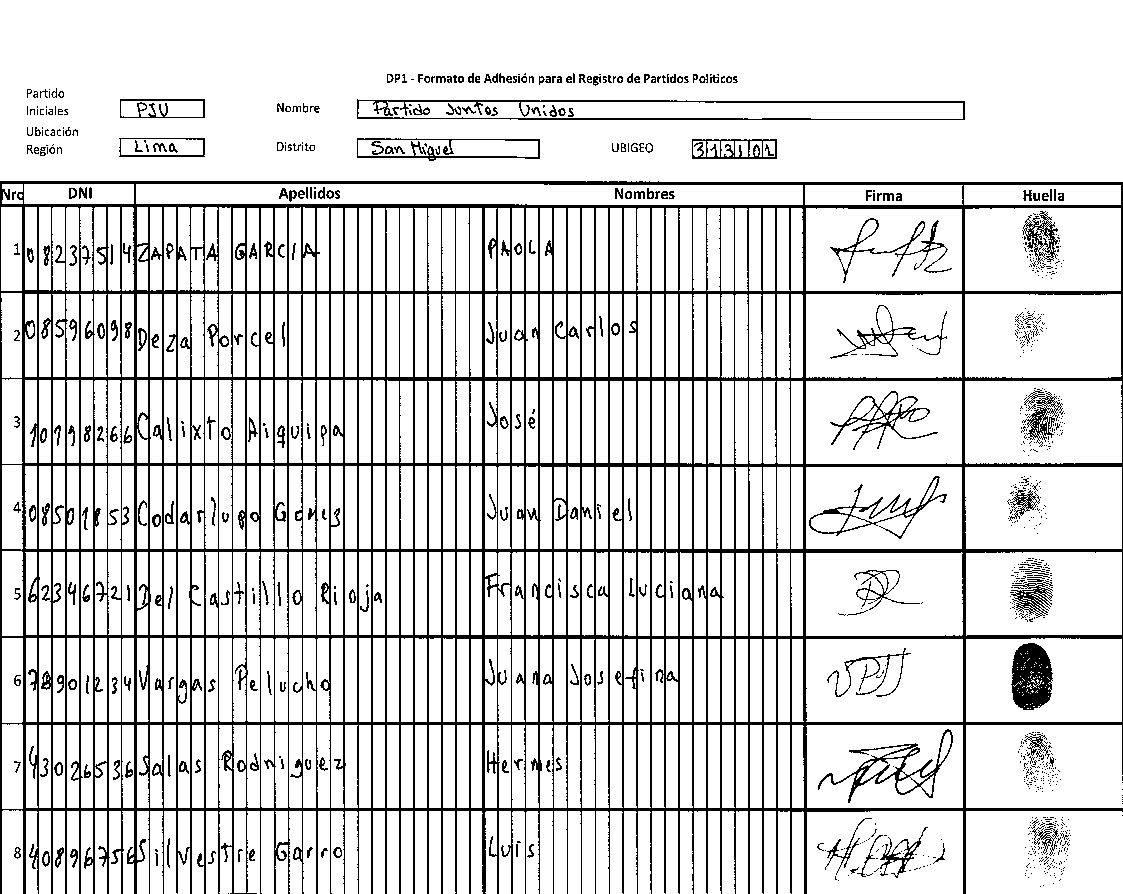 DP1 - Formato de Adhesión para el Registro de Partidos Políticos
Partido
Iniciales PJU Nombre Partido Juntos Unidos
Ubicación
Región Lima Distrito San Miguel UBIGEO 313101
Nro DNI Apellidos Nombres Firma Huella
1 08237514 ZAPATA GARCIA PAOLA
2 08596098 Deza Porcel Juan Carlos
3 10798266 Calixto Aiquipa José
4 08501853 Codarlupo Gómez Juan Daniel
5 62346721 Del Castilllo Rioja Francisca Luciana
6 78901234 Vargas Pelucho Juana Josefina
7 43026536 Salas Rodriguez Hermes
8 40896756 Silvestre Garro Luis